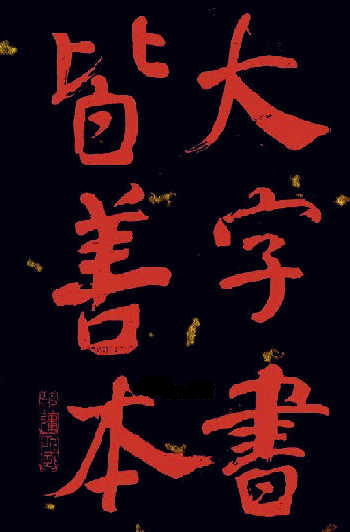 大字書
皆善本